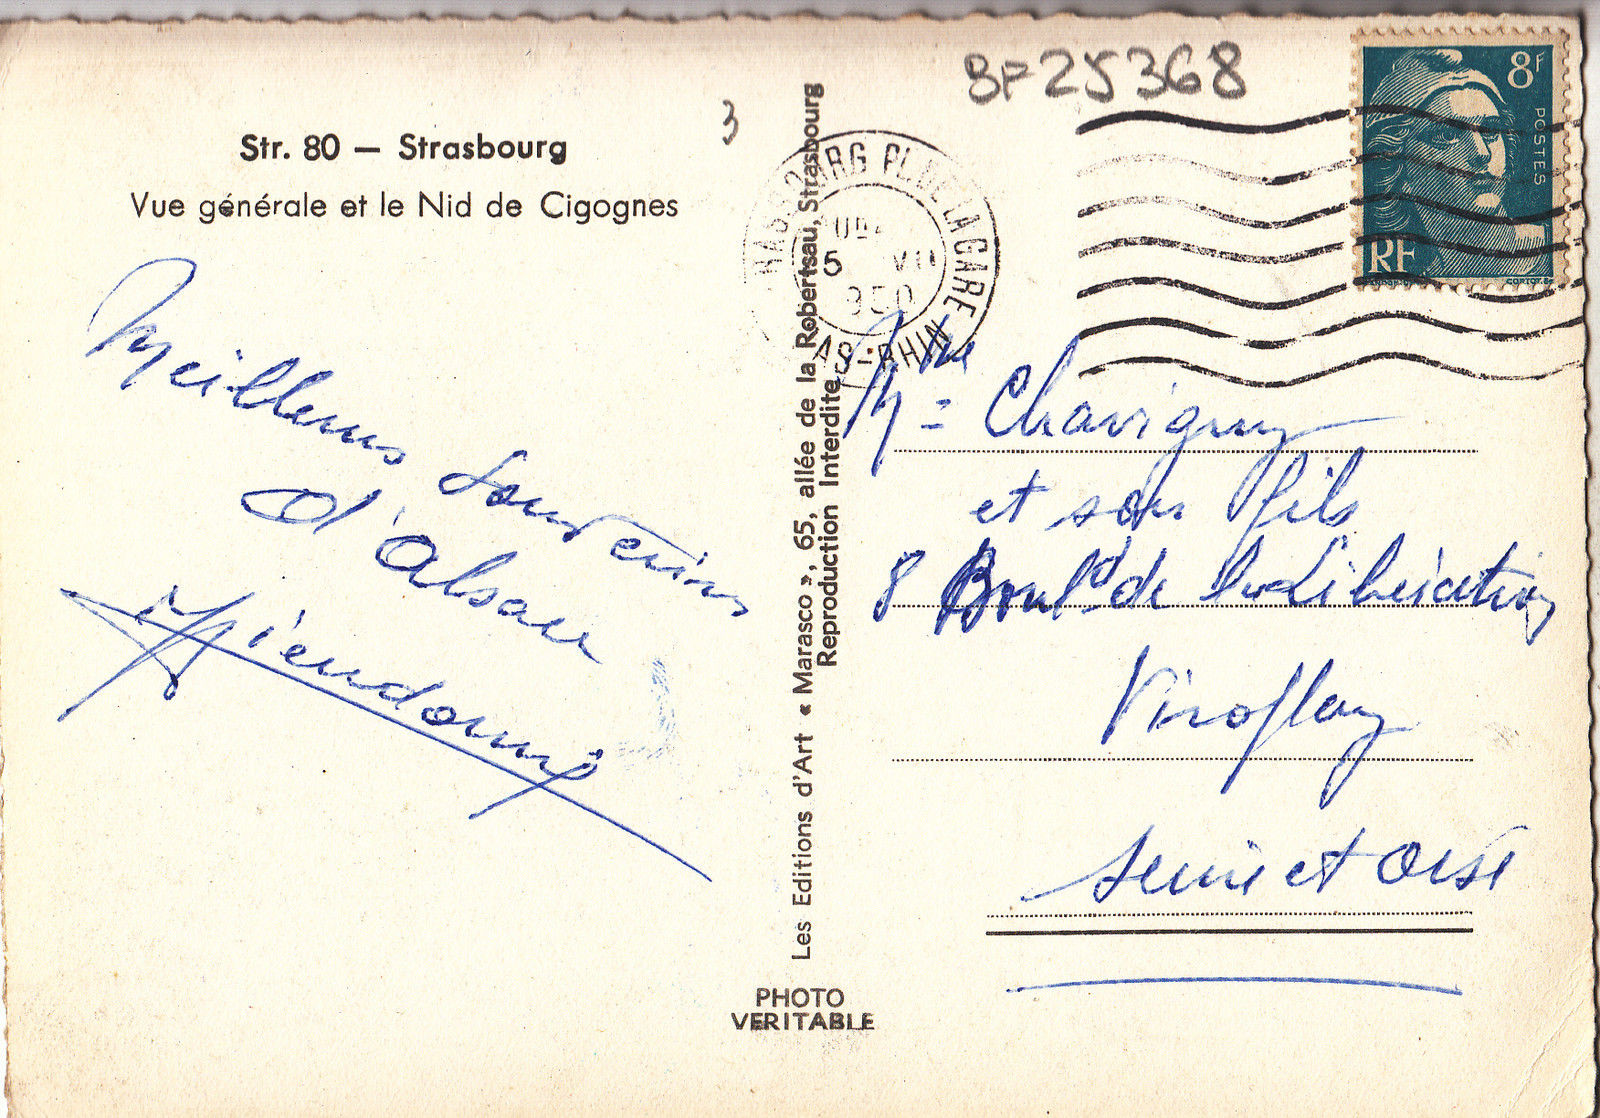 Str. 80 — Strasbourg
Vue générale et le Nid de Cigognes
Meilleurs
Souvenirs
d'Alsace
3
BF25368
8F
POSTES
RF
PLACE LA GARE
VII
950
BAS-RHIN
Les Editions d'Art « Marasco », 65, allée de la Robertsau, Strasbourg
Reproduction Interdite
Mme Chavigny
et son fils
8 Boul'd de la Libération
Viroflay
Seine et Oise
PHOTO
VERITABLE